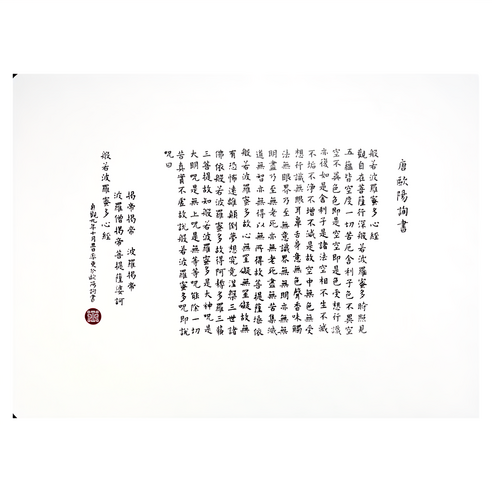 唐歐陽詢書
般若波羅蜜多心經
觀自在菩薩行深般若波羅蜜多時照見
五蘊皆空度一切苦厄舍利子色不異空
空不異色色即是空空即是色受想行識
亦復如是舍利子是諸法空相不生不滅
不垢不淨不增不減是故空中無色無受
想行識無眼耳鼻舌身意無色聲香味觸
法無眼界乃至無意識界無無明亦無無
明盡乃至無老死亦無老死盡無苦集滅
道無智亦無得以無所得故菩提薩埵依
般若波羅蜜多故心無罣礙無罣礙故無
有恐怖遠離顛倒夢想究竟涅槃三世諸
佛依般若波羅蜜多故得阿耨多羅三藐
三菩提故知般若波羅蜜多是大神呪是
大明呪是無上呪是無等等呪能除一切
苦真實不虛故說般若波羅蜜多呪即說
呪曰
揭帝揭帝 波羅揭帝
波羅僧揭帝菩提薩婆訶
般若波羅蜜多心經
貞觀九年十月
歐陽詢書